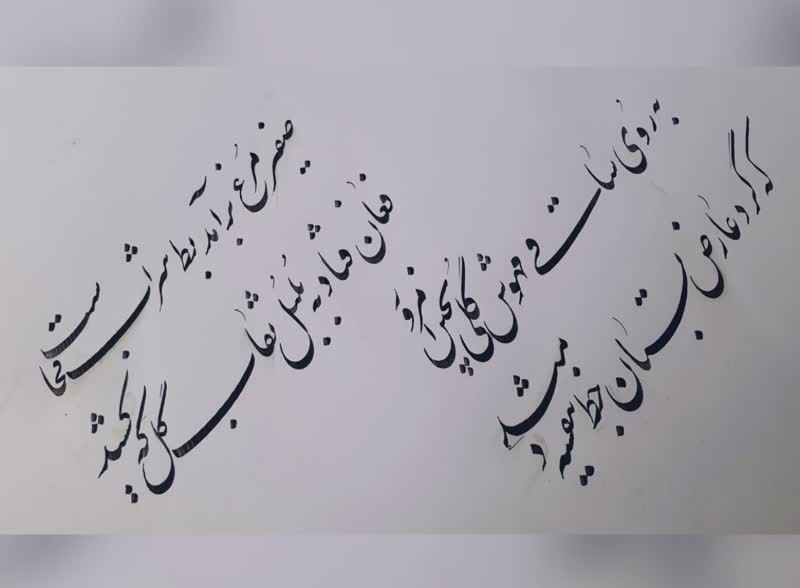 به روی ساقی مهوش گلی بچین امروز
که گرد عارض بستان خط بنفشه دمید
صفیر مرغ برآمد بط شراب کجاست
فغان فتاد به بلبل نقاب گل که کشید